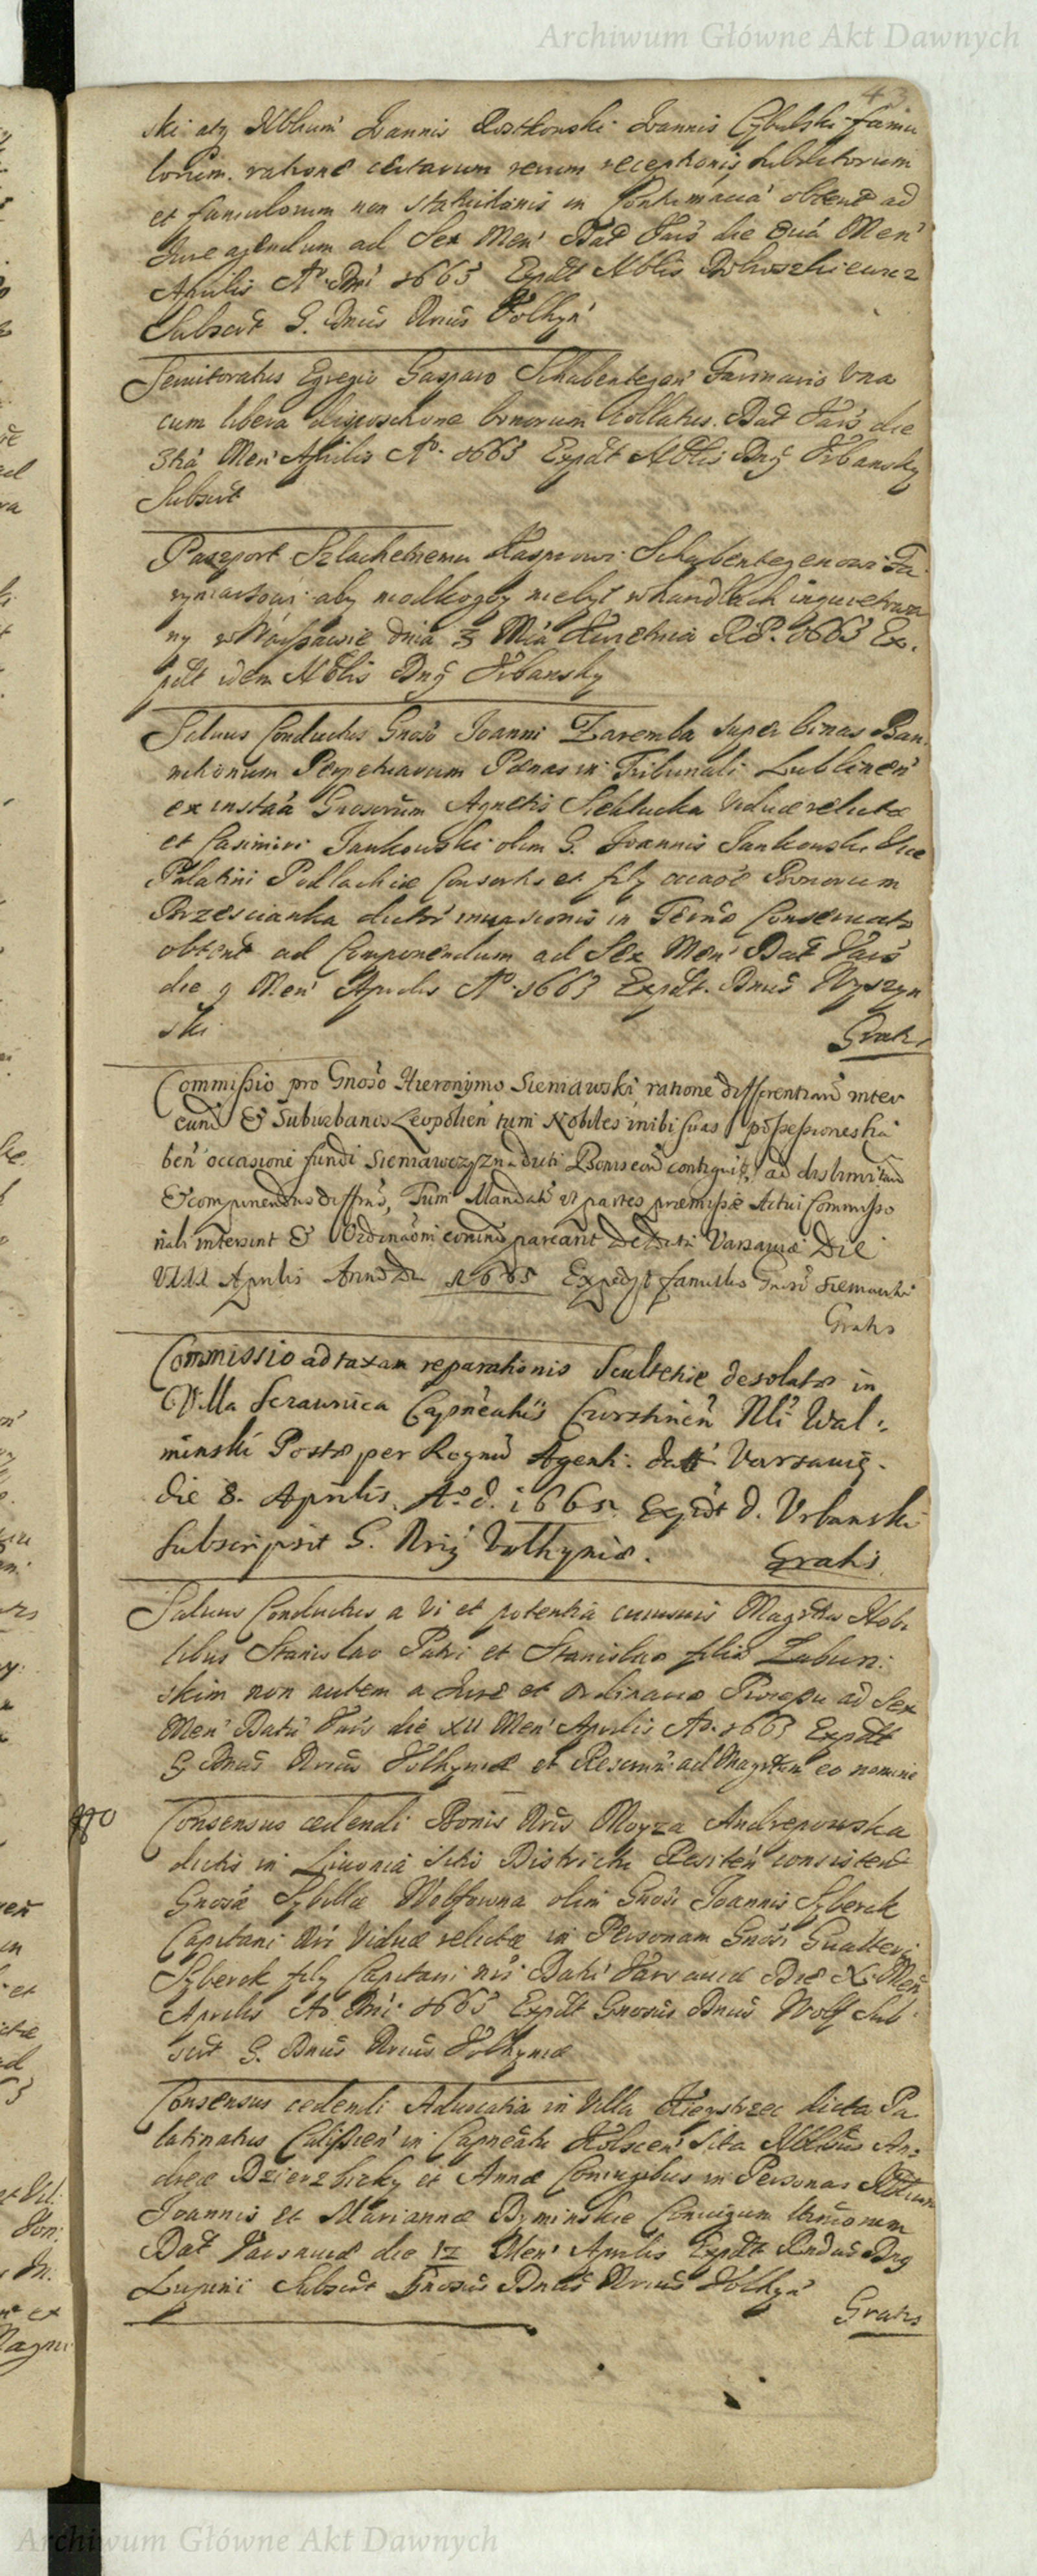 Archiwum Główne Akt Dawnych
43
ski atq Nblium Joannis Rostkowski Joannis Cybulski famu
lorum. ratione certarum rerum receptionis subditorum
et famulorum non statuitionis in Contumacia obtent ad
Jure agendum ad Sex Men' Dat Vars die 2da Men'
Aprilis Ao. Dni 1665 Expdt Nblis
Subscrt G. Dnus Nrius Volhyn'
Servitoratus Egregio Gasparo Schubentegen Farinario Una
cum libera dispositione bonorum collatus. Dat Vars die
3tia Men' Aprilis Ao. 1665 Expdt Nblis Dnq Vrbansky
Subscrt
Paszport Szlachetnemu Kasprowi Schubentegenowi Fa
ryniarzowi aby niodkogoy niebył whandlach inquietowa
ny w Warszawie dnia 3 Mca Kwietnia R.P. 1665 Ex.
pdt idem Nblis Dnq Vrbansky
Salvus Conductus Gnoso Joanni Zaremba super binas Ban
nitionum Perpetuarum Pænas in Tribunali Lublinen'
ex instã Gnosorum Agnetis Siekłucka Viduæ relictæ
et Casimiri Jankowski olim G. Joannis Jankowski Vice
Palatini Podlachiæ Consortis et filij occaõe Bonorum
Brzescianka dictor' invasionis in Termo Conservato
obtent ad Componendum ad Sex Men' Dat Vars
die 9 Men' Aprilis Ao. 1665 Expdt. Dnus Wyszyn
ski
Gratis
Commissio pro Gnoso Hieronymo Sieniawski ratione differentiarũ inter
eund & Suburbanos Leopolien' tum Nobiles inibi suas possessiones ha
ben' occasione fundi Sieniawczyzna dicti Bonis eorũ contiguis, ad dislimitand
& componendas differrẽs, Tum Mandatũ ut partes præmissæ Actui Commissio
nali intersint & Ordinaoni eorund pareant De Dati Varsaviæ Die
VIII Aprilis Anno Dni 1665 Expedijt famulus Gnosi Sieniawski
Gratis
Commissio ad taxam reparationis Scultetiæ desolatæ in
Villa Serawnica Capneatus Czorstinen' Nli Wal-
minski Postæ per Regnũ Agenti. datt Varsaviæ.
die 8. Aprilis. Ao. d. 1665. Expdt d. Vrbanski
Subscripsit G. Nrius Volhyniæ.
Gratis.
Salvus Conductus a Vi et potentia cuiusvis Magrtus Nobi
libus Stanislao Patri et Stanislao filio Zaburz.
skim non autem a Jure et ordinario Processu ad Sex
Men' Datũ Vars die XII Men' Aprilis Ao. 1665 Expdt
G Dnus Nrius Volhyniæ et Rescrim ad Magrtum eo nomine
Consensus cedendi Bonis Nris Moyza Andrepowska
dictis in Livonia Sitis Districtu Resiten' consisten
Gnosæ Sybillæ Wolfowna olim Gnosi Joannis Syberck
Capitani Nri Viduæ relictæ in Personam Gnosi Gualteri
Syberck filij Capitani nri Dati Varsaviæ Die X Men
Aprilis Ao Dni 1665 Expdt Gnosus Dnus Wolf Sub
scrt G. Dnus Nrius Volhyniæ
Consensus cedendi Advocatia in Villa Kierszrzec dicta Pa
latinatus Calissien' in Capneatu Kolscen' Sita Nblibus An-
dreæ Dzierzbicky et Annæ Coniugibus in Personas Nblium
Joannis et Mariannæ Byminskie Coniugum
Dat Varsaviæ die 12 Men' Aprilis Expdt Rndus Dnq
Lupini Subscrt Gnosus Dnus Nrius Volhyn'
Gratis
Archiwum Główne Akt Dawnych